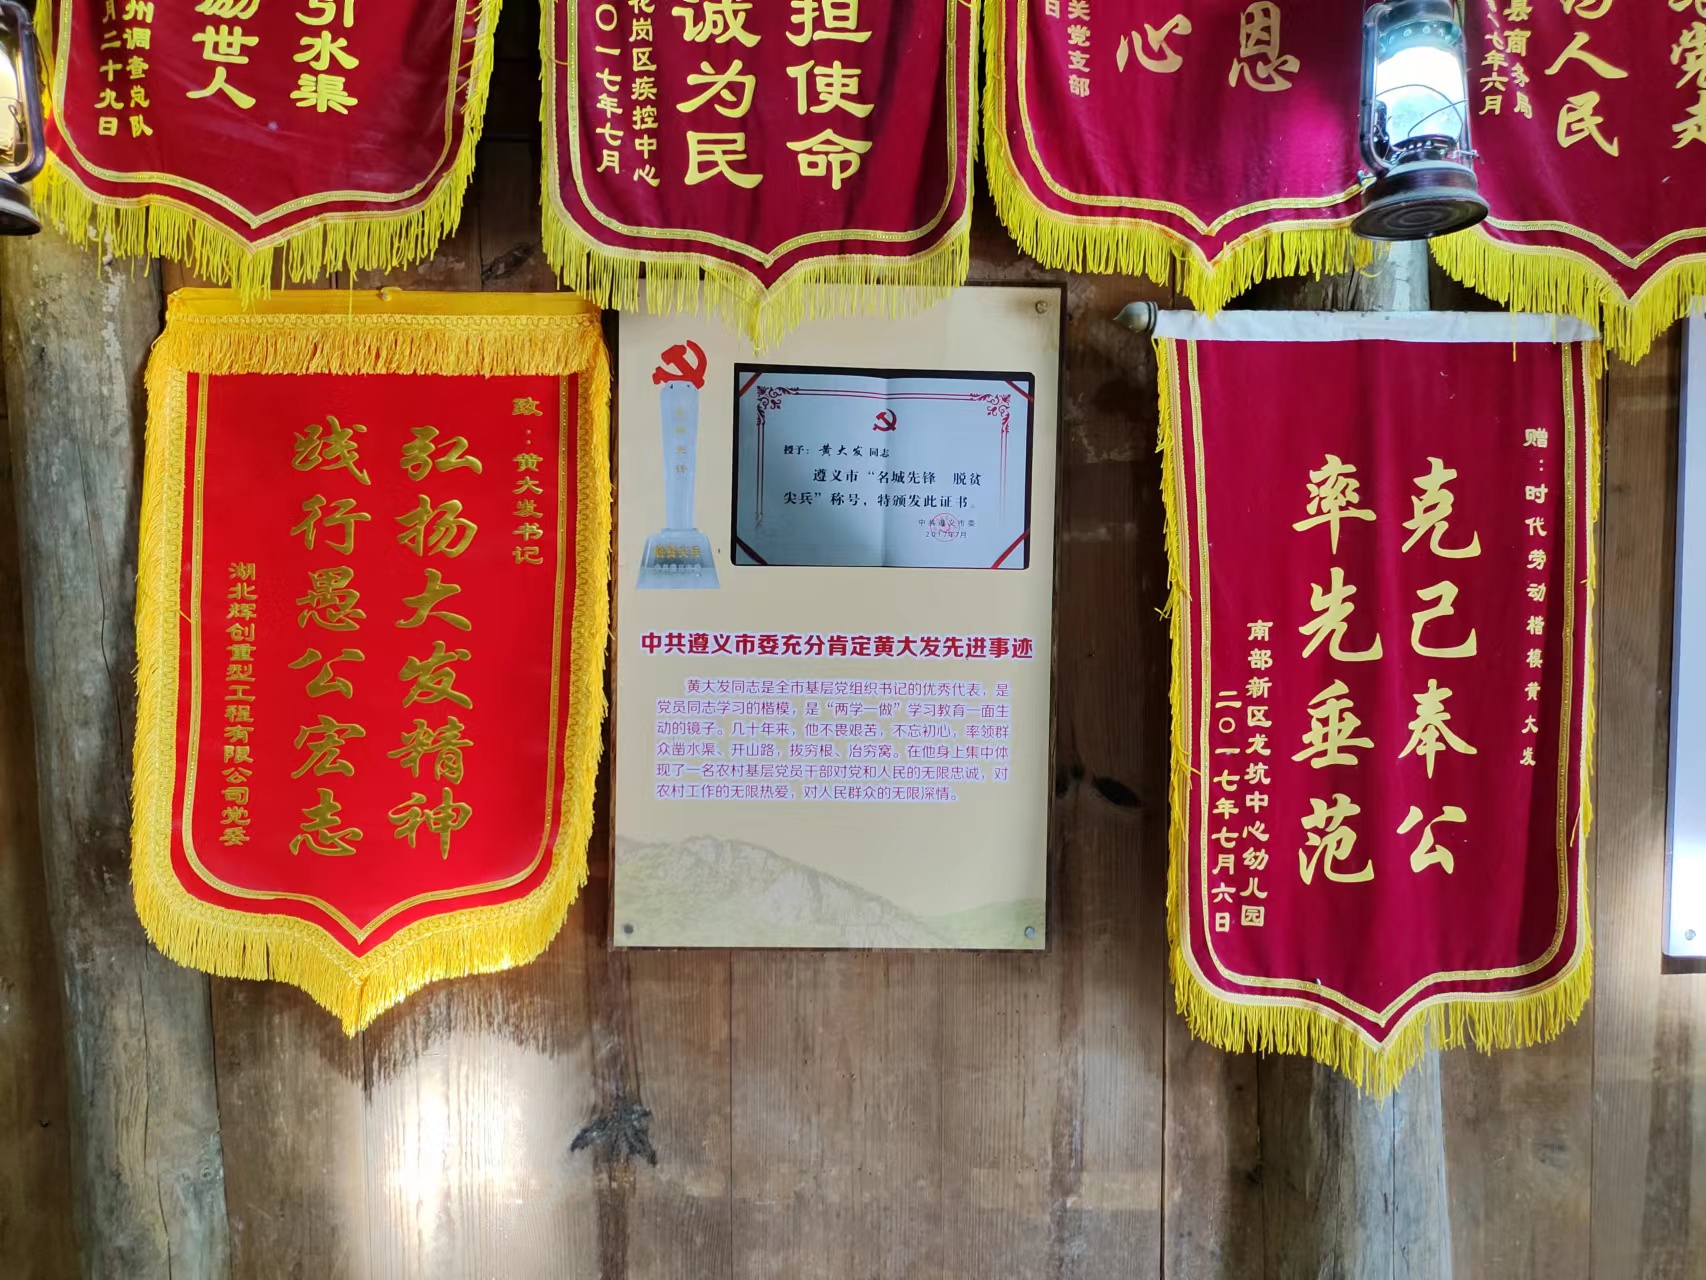 引水渠
励世人
州调查总队
月二十九日
担使命
诚为民
花岗区疾控中心
〇一七年七月
恩
心
关党支部
日
人民
县商务局
七年六月
致：黄大发书记
弘扬大发精神
践行愚公宏志
湖北辉创重型工程有限公司党委
脱贫尖兵
授予：黄大发 同志
遵义市“名城先锋 脱贫
尖兵”称号，特颁发此证书。
中共遵义市委
2017年7月
中共遵义市委充分肯定黄大发先进事迹
黄大发同志是全市基层党组织书记的优秀代表，是
党员同志学习的楷模，是“两学一做”学习教育一面生
动的镜子。几十年来，他不畏艰苦，不忘初心，率领群
众凿水渠、开山路，拔穷根、治穷窝。在他身上集中体
现了一名农村基层党员干部对党和人民的无限忠诚，对
农村工作的无限热爱，对人民群众的无限深情。
赠：时代劳动楷模黄大发
克己奉公
率先垂范
南部新区龙坑中心幼儿园
二〇一七年七月六日